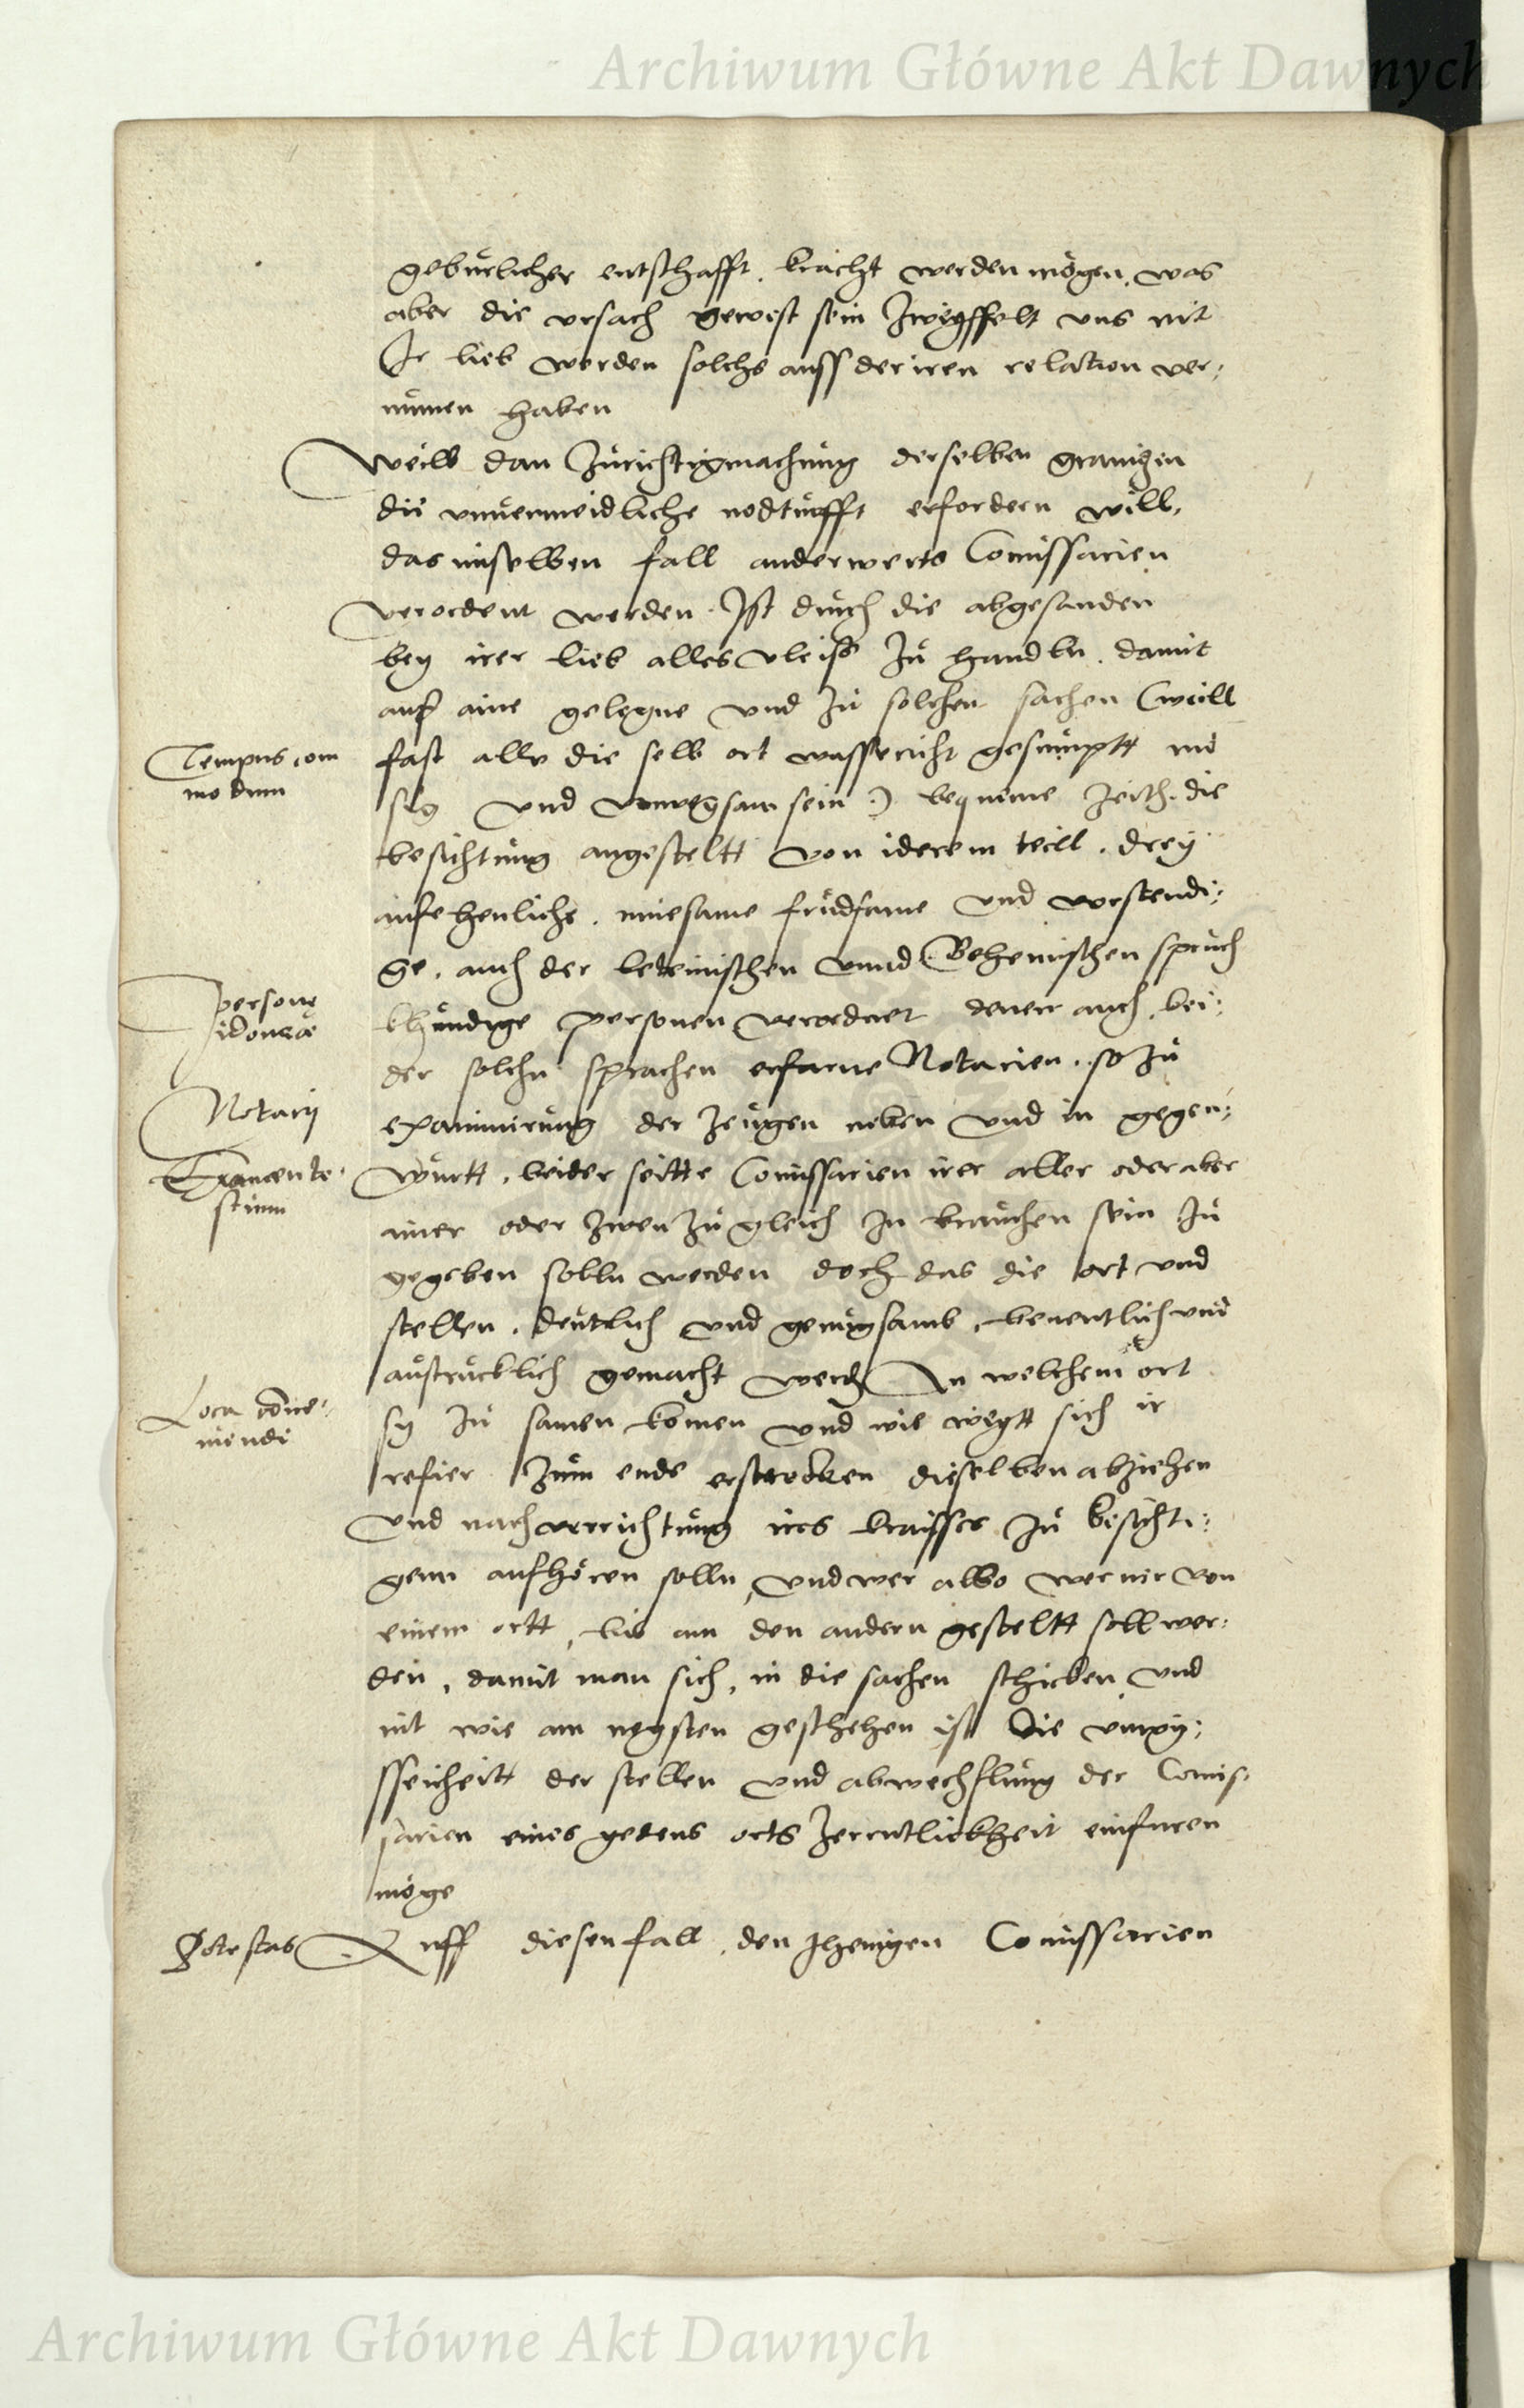 Archiwum Główne Akt Dawnych
gebürlicher entschafft. bracht werden mögen, was
aber die vrsach gewest sein Zweyffelt vns nit
Ir lieb werden solchs auss der iren relation ver:
numen haben
Weill dan Zurichtigmachung derselben granizen
die vnuermeidliche nodturfft erfordern will,
das imselben fall anderwerts Comissarien
verordent werden. Ist durch die abgesanden
bey irer lieb alles vleiss Zu handln. damit
auf aine gelegne vnd zu solchen sachen (weill
Tempus com
modum
fast alle die selb ort wasserricht gesumptt mo
sig vnd vnwegsam sein :) bequeme Zeith. die
besichtung angesteltt von iderem teill. drey
ansehenliche. muesame fridsame vnd verstendi:
ge. auch der lateinischen vnnd Behemischen spruch
personę
idoneæ
khundige personen verordnet denen auch bei:
der solchn sprachen erfarne Notarien. so zu
Notarij
examinirung der Zeugen neben vnd in gegen:
Examen te
stium
wurtt, beider seitte Comissarien irer aller oder aber
ainer oder zwen zu gleich zu brauchen sein zu
gegeben solln werden doch das die ort vnd
stellen. deutlich vnd genugsamb, benentlich vnd
austrucklich gemacht werdn An welchem ort
Loca conue:
niendi
sy zu samen komen vnd wie weytt sich ir
refier zum ende erstrecken dieselben abziehen
vnd nach verrichtung ires kraisses zu besichti:
genn aufhören solln, vnd wer also wer mir von
einem ortt, bis am den andern gesteltt soll wer:
den, damit man sich, in die sachen schicken vnd
nit wie am negsten geschehen ist Die vnwy:
ssenheitt der stellen vnd abwechslung der Comis:
sarien eines yedens orts Zerrutlickheit einfuren
möge
Potestas
Auff diesen fall, den Jhenigen Comissarien
Archiwum Główne Akt Dawnych